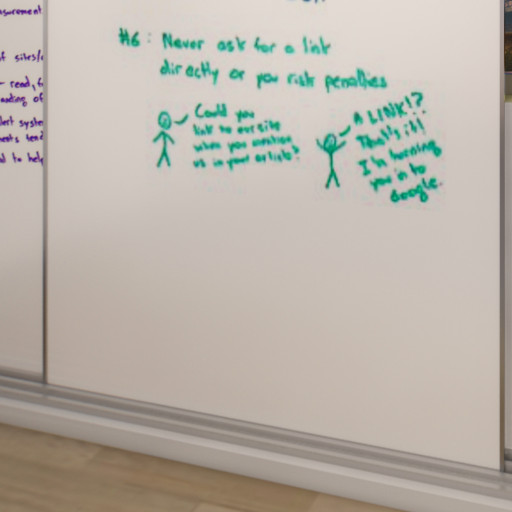 surement
f sites/
- read, f
nading of
lert syste
ments tend
d to help
#6: Never ask for a link
directly or you risk penalties
Could you
link to our site
when you mention
us in your article?
A LINK!?
That's it!
I'm turning
you in to
Google.